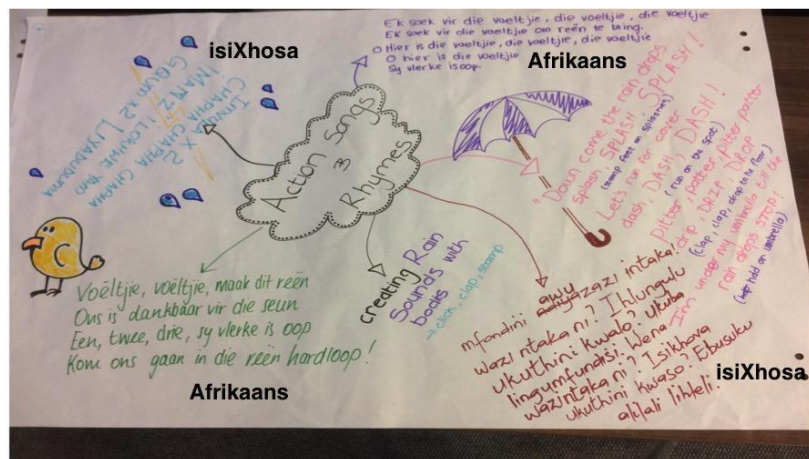 isiXhosa
Imvula X 2
CHAPHA CHAPHA CHAPHA
IMATZ ILOKHWE YAM
GQUM X2 LIYADUDUMA
Ek soek vir die voeltjie, die voeltjie, die voeltjie
Ek soek vir die voeltjie om reën te bring.
O Hier is die voeltjie, die voeltjie, die voeltjie
O hier is die voeltjie
Sy vlerke is oop.
Afrikaans
Action Songs
&
Rhymes
"Down come the rain drops
splash, SPLASH, SPLASH!
(stomp feet on splashes)
Let's run for cover
dash, DASH, DASH!
(run on the spot)
Pitter patter, pitter patter
drip, DRIP, DROP
(clap, clap, drop to the floor)
I'm under my umbrella till the
rain drops STOP!
(hold an umbrella)
Voëltjie, voëltjie, maak dit reën
Ons is dankbaar vir die seun
Een, twee, drie, sy vlerke is oop
Kom ons gaan in die reën hardloop!
Afrikaans
creating Rain
Sounds with
bodies
→ click, clap, stamp
awu
mfondini azazi intaka!
wazi ntaka ni? Ihlungulu
ukuthini kwalo? Ukuba
lingumfundisi. Wena
wazintaka ni? Isikhova
ukuthini kwaso? Ebusuku
alilali lihleli.
isiXhosa